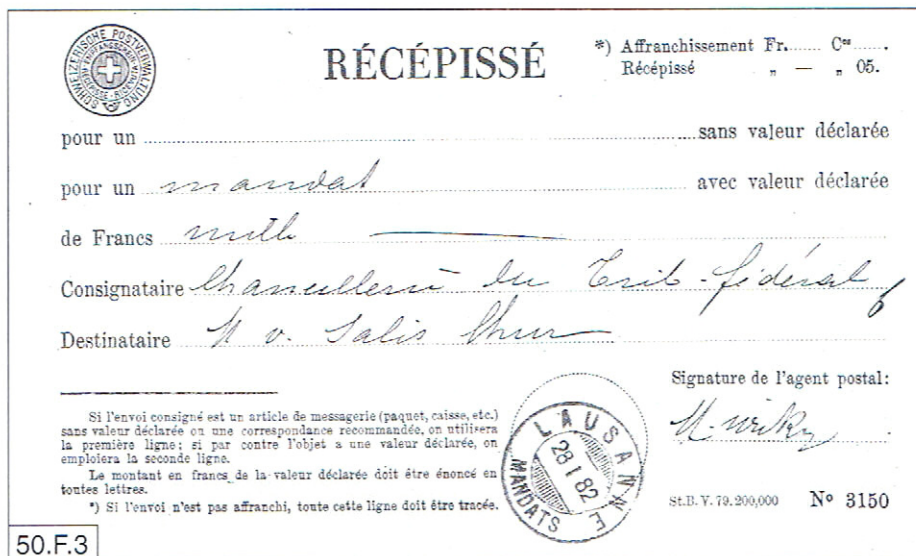 SCHWEIZERISCHE POSTVERWALTUNG
RÉCÉPISSÉ
*) Affranchissement Fr....... Ces ......
Récépissé „ — „ 05.
pour un ........ sans valeur déclarée
pour un mandat avec valeur déclarée
de Francs mille
Consignataire Chancellerie du Trib. fédéral
Destinataire v. Salis Chur
Signature de l'agent postal:
Si l'envoi consigné est un article de messagerie (paquet, caisse, etc.)
sans valeur déclarée ou une correspondance recommandée, on utilisera
la première ligne; si par contre l'objet a une valeur déclarée, on
emploiera la seconde ligne.
Le montant en francs de la valeur déclarée doit être énoncé en
toutes lettres.
*) Si l'envoi n'est pas affranchi, toute cette ligne doit être tracée.
LAUSANNE
28 I 82
MANDATS
St.B. V. 79. 200,000 No 3150
50.F.3